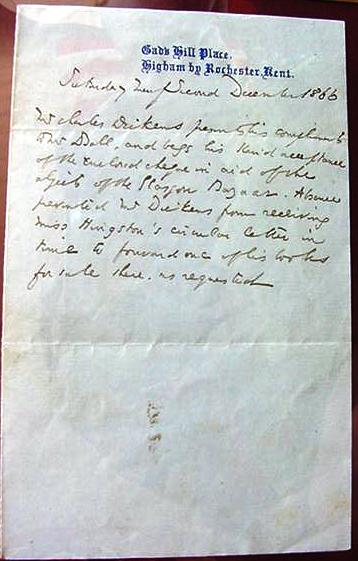 Gad's Hill Place,
Higham by Rochester, Kent.
Saturday Twenty Second December 1866
Mr Charles Dickens presents his compliments
to Mr Dall, and begs his kind acceptance
of the enclosed cheque in aid of the
objects of the Glasgow Bazaar. Absence
prevented Mr Dickens from receiving
Miss Hingston's circular letter in
time to forward one of his works
for sale there, as requested